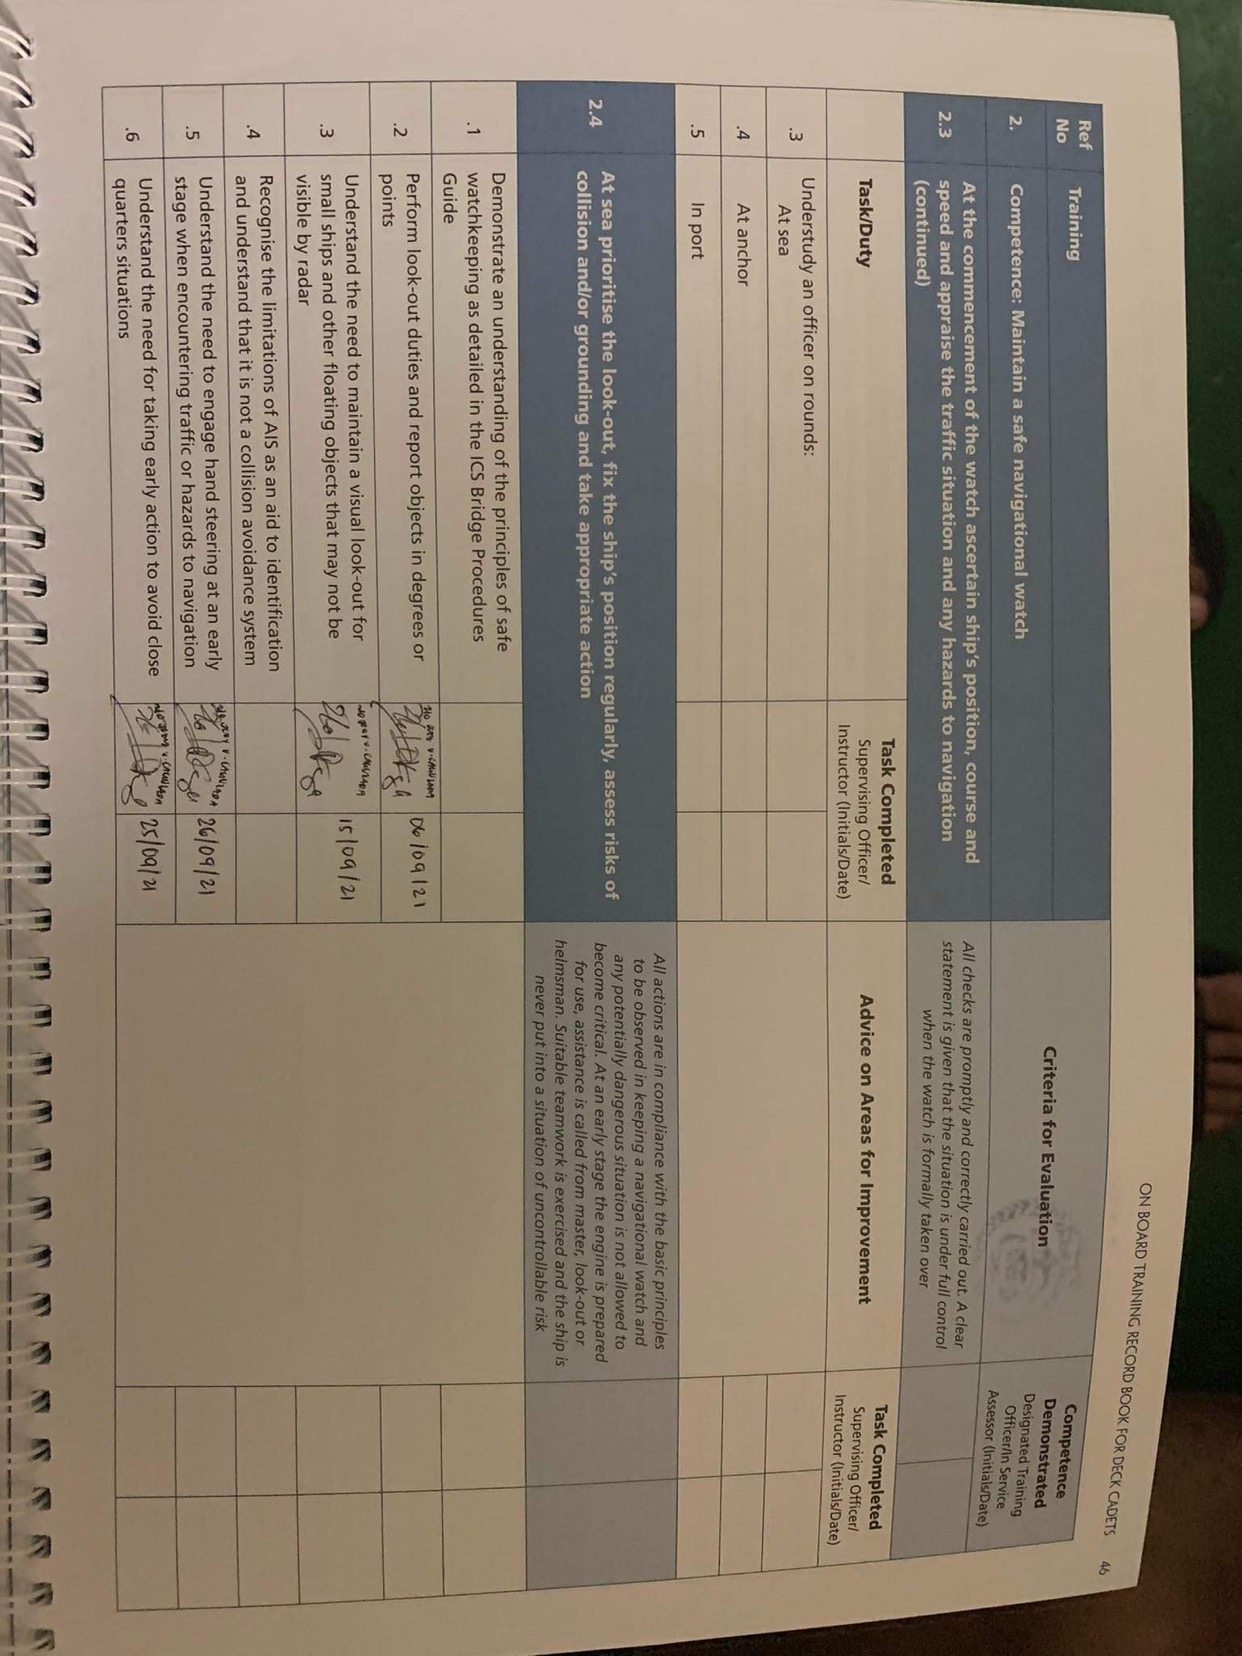 ON BOARD TRAINING RECORD BOOK FOR DECK CADETS 46
Ref
No
Training
Criteria for Evaluation
Competence
Demonstrated
Designated Training
Officer/In Service
Assessor (Initials/Date)
2. Competence: Maintain a safe navigational watch
2.3 At the commencement of the watch ascertain ship's position, course and
speed and appraise the traffic situation and any hazards to navigation
(continued)
All checks are promptly and correctly carried out. A clear
statement is given that the situation is under full control
when the watch is formally taken over
Task/Duty
Task Completed
Supervising Officer/
Instructor (Initials/Date)
Advice on Areas for Improvement
Task Completed
Supervising Officer/
Instructor (Initials/Date)
Understudy an officer on rounds:
.3 At sea
.4 At anchor
.5 In port
2.4 At sea prioritise the look-out, fix the ship's position regularly, assess risks of
collision and/or grounding and take appropriate action
All actions are in compliance with the basic principles
to be observed in keeping a navigational watch and
any potentially dangerous situation is not allowed to
become critical. At an early stage the engine is prepared
for use, assistance is called from master, look-out or
helmsman. Suitable teamwork is exercised and the ship is
never put into a situation of uncontrollable risk
.1 Demonstrate an understanding of the principles of safe
watchkeeping as detailed in the ICS Bridge Procedures
Guide
.2 Perform look-out duties and report objects in degrees or
points
06/09/21
.3 Understand the need to maintain a visual look-out for
small ships and other floating objects that may not be
visible by radar
15/09/21
.4 Recognise the limitations of AIS as an aid to identification
and understand that it is not a collision avoidance system
.5 Understand the need to engage hand steering at an early
stage when encountering traffic or hazards to navigation
26/09/21
.6 Understand the need for taking early action to avoid close
quarters situations
25/09/21